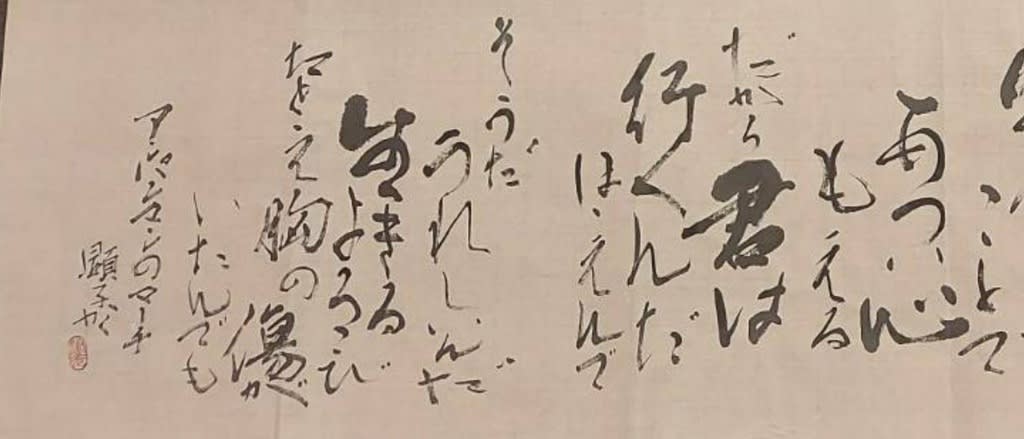 ことで
あつい心
もえる
だから君は
行くんだ
ほゝえんで
そうだ
うれしいんだ
生きる
よろこび
たとえ胸の
傷が
いたんでも
アンパンマンのマーチ